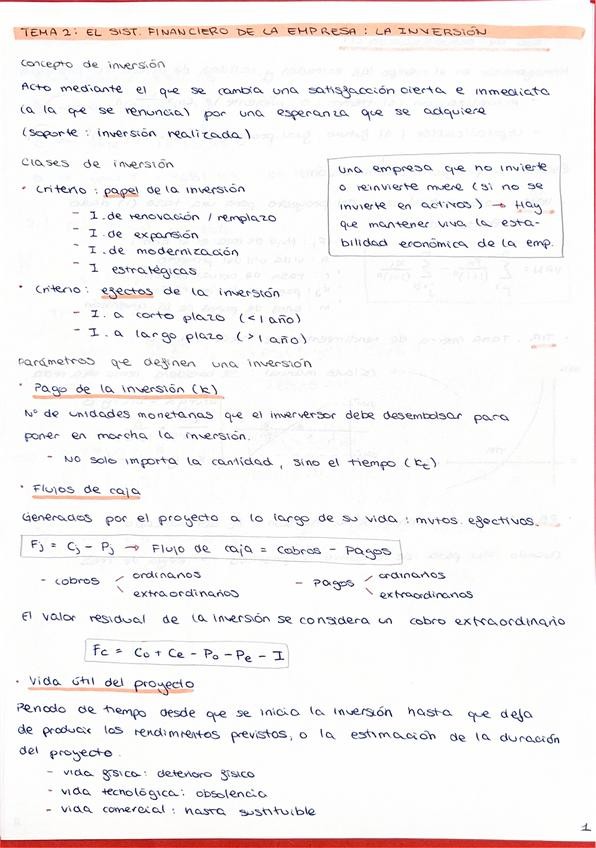 TEMA 2: EL SIST. FINANCIERO DE LA EMPRESA: LA INVERSIÓN
Concepto de inversión
Acto mediante el que se cambia una satisfacción cierta e inmediata
(a la que se renuncia) por una esperanza que se adquiere
(soporte: inversión realizada)
Clases de inversión
· Criterio: papel de la inversión
- I. de renovación / remplazo
- I. de expansión
- I. de modernización
- I estratégicas
· Criterio: efectos de la inversión
- I. a corto plazo (< 1 año)
- I. a largo plazo (> 1 año)
Una empresa que no invierte
o reinvierte muere (si no se
invierte en activos) → Hay
que mantener viva la esta-
bilidad económica de la emp.
Parámetros que definen una inversión
· Pago de la inversión (K)
Nº de unidades monetarias que el inverversor debe desembolsar para
poner en marcha la inversión.
- No solo importa la cantidad, sino el tiempo (Kt)
· Flujos de caja
Generados por el proyecto a lo largo de su vida: mvtos. efectivos.
Fj = Cj - Pj → Flujo de caja = Cobros - Pagos
- cobros ordinarios
extraordinarios
- Pagos ordinarios
extraordinarios
El valor residual de la inversión se considera un cobro extraordinario
Fc = Co + Ce - Po - Pe - I
· Vida útil del proyecto
Periodo de tiempo desde que se inicia la inversión hasta que deja
de producir los rendimientos previstos, o la estimación de la duración
del proyecto.
- vida física: deterioro físico
- vida tecnológica: obsolencia
- vida comercial: hasta sustituible
1